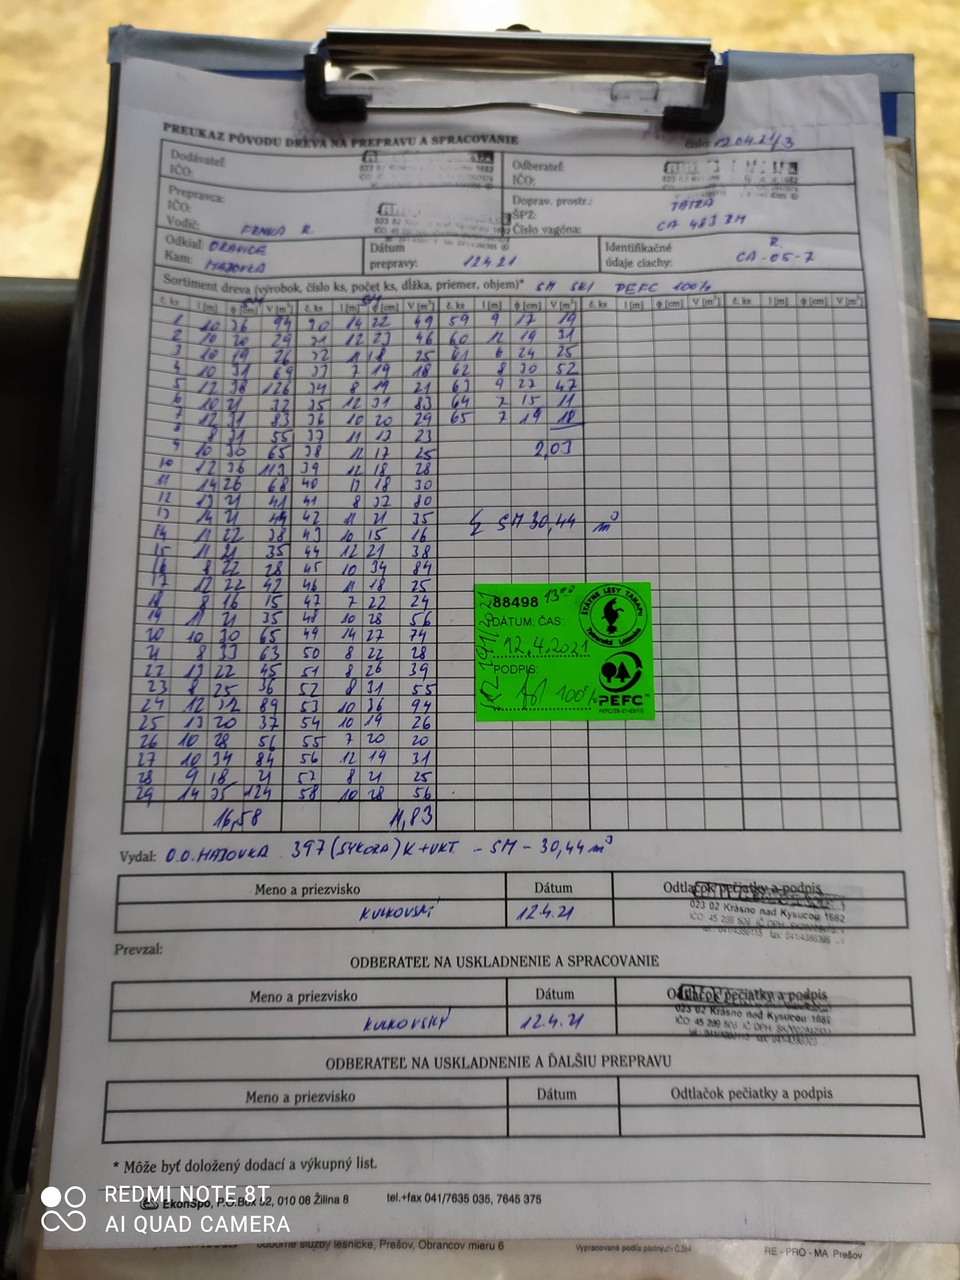 PREUKAZ PÔVODU DREVA NA PREPRAVU A SPRACOVANIE
číslo: 120421/3
Dodávateľ:
IČO:
Odberateľ:
IČO:
Prepravca:
IČO:
Vodič:
Doprav. prostr.: TATRA
ŠPZ: CA 483 ZM
Číslo vagóna:
Odkiaľ: ORAVICE
Kam: HÁJOVKA
Dátum
prepravy: 12.4.21
Identifikačné
údaje ciachy:
R
CA-05-7
Sortiment dreva (výrobok, číslo ks, počet ks, dĺžka, priemer, objem)* SM PEFC 100%
č. ks l [m] φ [cm] V [m³] č. ks l [m] φ [cm] V [m³] č. ks l [m] φ [cm] V [m³] č. ks l [m] φ [cm] V [m³] č. ks l [m] φ [cm] V [m³]
1 10 36 94 30 14 22 49 59 9 17 19
2 10 20 29 31 12 23 46 60 12 19 31
3 10 19 26 32 11 18 25 61 6 24 25
4 10 31 69 33 7 19 18 62 8 30 52
5 12 38 126 34 8 19 21 63 9 27 47
6 10 21 32 35 12 31 83 64 7 15 11
7 12 31 83 36 10 20 29 65 7 19 18
8 8 31 55 37 11 17 23
9 10 30 65 38 12 17 25 2,03
10 12 36 113 39 12 18 28
11 14 26 68 40 13 18 30
12 13 21 41 41 8 37 80
13 14 21 44 42 11 21 35 Σ SM 30,44 m³
14 11 22 38 43 10 15 16
15 11 21 35 44 12 21 38
16 8 22 28 45 10 34 84
17 12 22 42 46 11 18 25
18 8 16 15 47 7 22 24
19 11 21 35 48 10 28 56
20 10 30 65 49 14 27 74
21 8 33 63 50 8 22 28
22 13 22 45 51 8 26 39
23 8 25 36 52 8 31 55
24 12 32 89 53 10 36 94
25 13 20 37 54 10 19 26
26 10 28 56 55 7 20 20
27 10 34 84 56 12 19 31
28 9 18 21 57 8 21 25
29 14 35 124 58 10 28 56
16,58 11,83
88498 13⁰⁰
DÁTUM, ČAS:
12.4.2021
PODPIS:
100%
ŠTÁTNE LESY TANAPU
Tatranská Lomnica
PEFC™
Vydal: O.O. HÁJOVKA 397 (SÝKORA) K+VKT - SM - 30,44 m³
Meno a priezvisko Dátum Odtlačok pečiatky a podpis
KULKOVSKÝ 12.4.21
023 02 Krásno nad Kysucou 1682
Prevzal:
ODBERATEĽ NA USKLADNENIE A SPRACOVANIE
Meno a priezvisko Dátum Odtlačok pečiatky a podpis
KULKOVSKÝ 12.4.21
023 02 Krásno nad Kysucou 1682
ODBERATEĽ NA USKLADNENIE A ĎALŠIU PREPRAVU
Meno a priezvisko Dátum Odtlačok pečiatky a podpis
* Môže byť doložený dodací a výkupný list.
EkonSpo, P.O.Box 52, 010 08 Žilina 8 tel.+fax 041/7635 035, 7645 375
odborné služby lesnícke, Prešov, Obrancov mieru 6 Vypracované podľa platných ČSN RE - PRO - MA Prešov
REDMI NOTE 8T
AI QUAD CAMERA